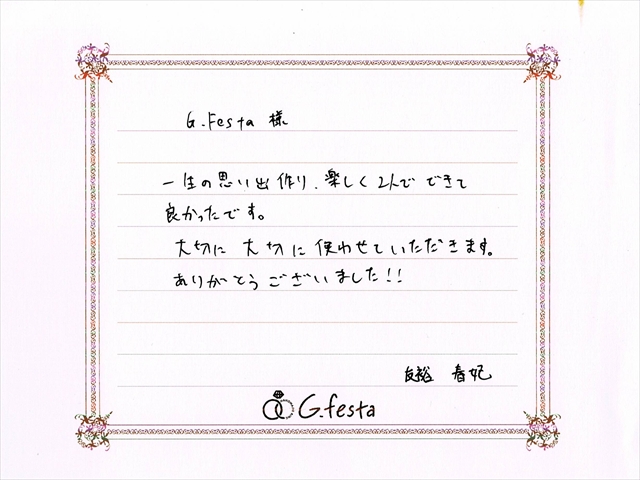 G.Festa 様
一生の思い出作り、楽しく2人で できて
良かったです。
大切に 大切に 使わせていただきます。
ありがとうございました!!
友裕 春妃
G.festa